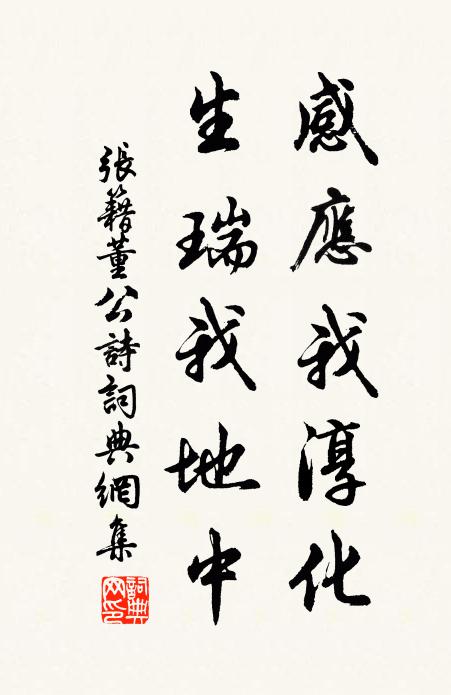 感應我淳化
生瑞我地中
張籍董公詩詞典網集
詞典網印